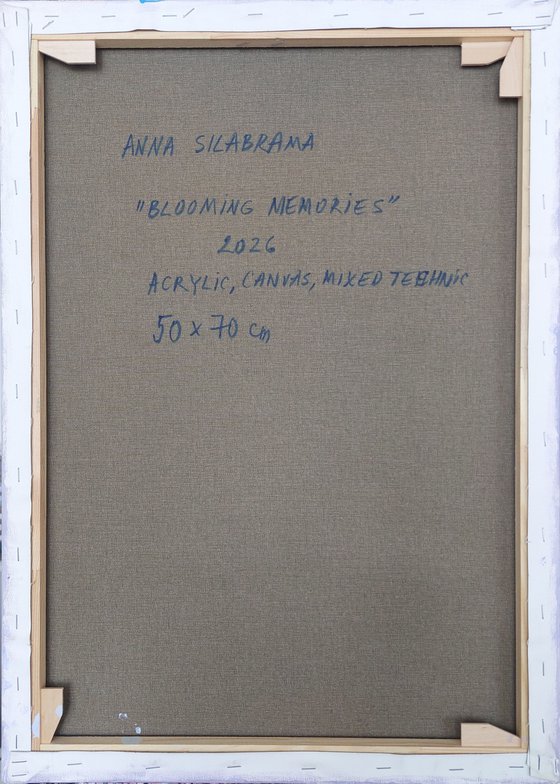 ANNA SILABRAMA
"BLOOMING MEMORIES"
2026
ACRYLIC, CANVAS, MIXED TECHNIC
50 x 70 cm